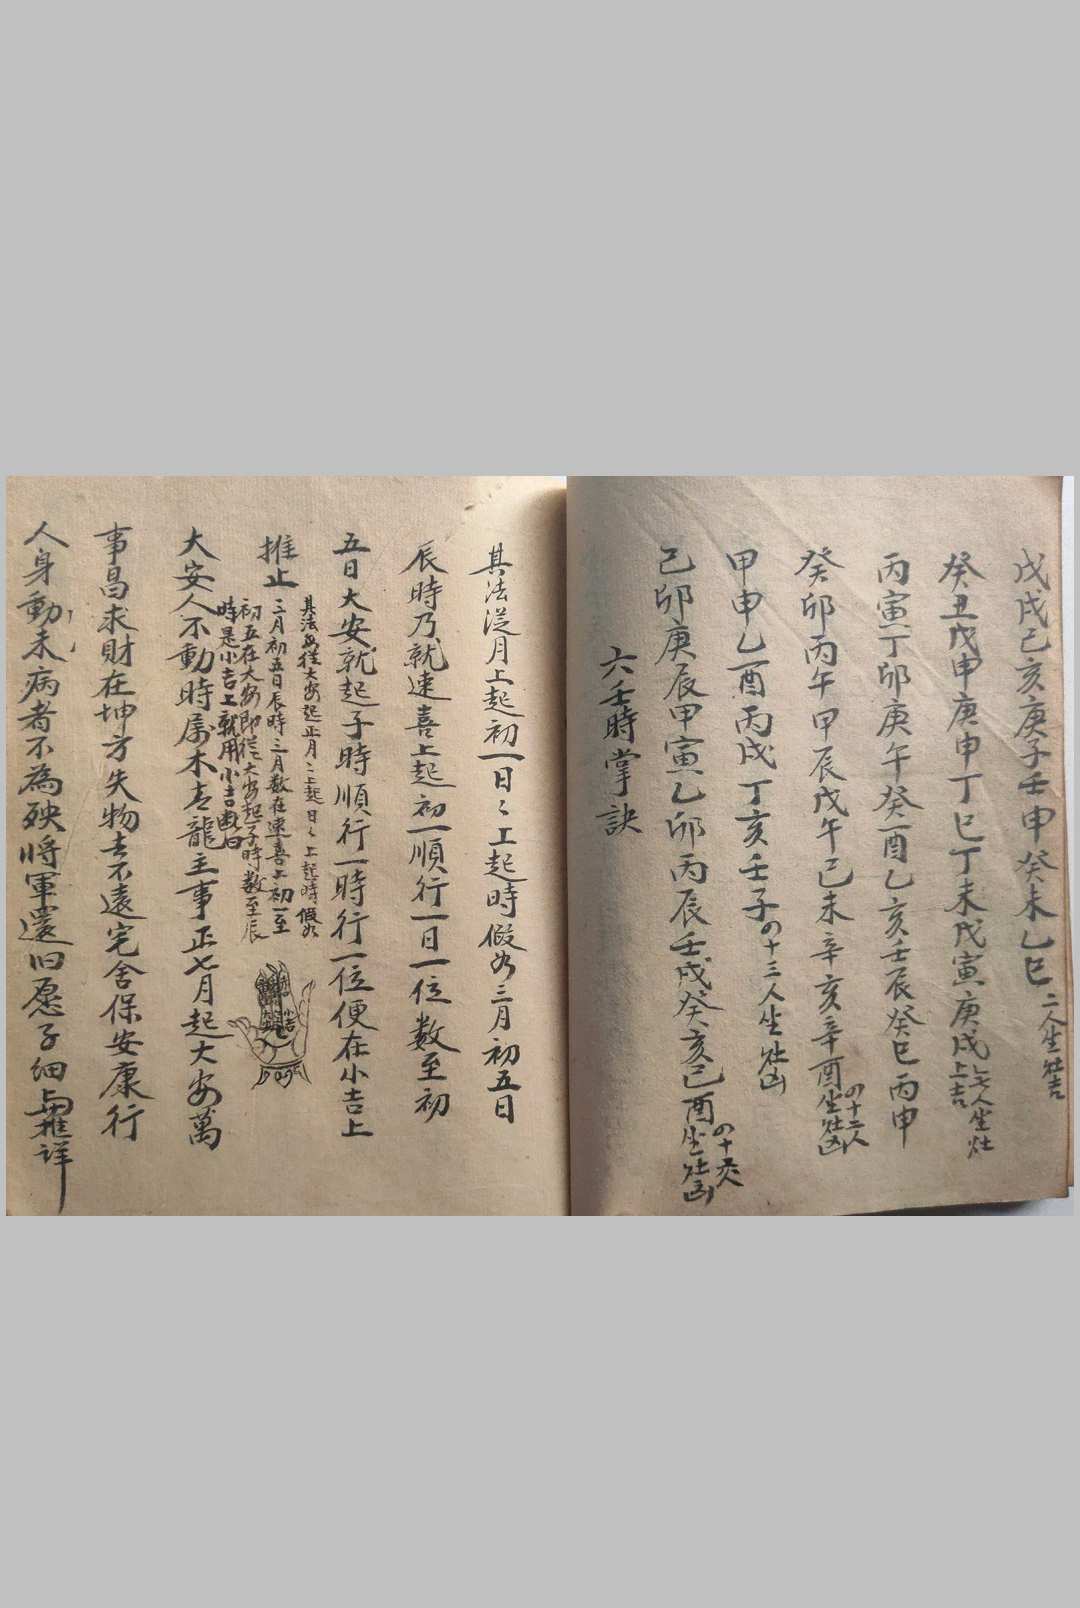 戊戌己亥庚子壬申癸未乙巳
二人坐灶吉
癸丑戊申庚申丁巳丁未戊寅庚戌
七人坐灶
上吉
丙寅丁卯庚午癸酉乙亥壬辰癸巳丙申
癸卯丙午甲辰戊午己未辛亥辛酉
の十二人
坐灶凶
甲申乙酉丙戌丁亥壬子
の十三人坐灶凶
己卯庚辰甲寅乙卯丙辰壬戌癸亥己酉
の十
人
坐灶凶
六壬時掌訣
其法從月上起初一日〻上起時假如三月初五日
辰時乃就速喜上起初一順行一日一位数至初
五日大安就起子時順行一時行一位便在小吉上
推止
其法
從大安起正月〻上起日〻上起時假如
三月初五日辰時三月数在速喜上初一至
初五在大安即從大安起子時数至辰
時是小吉上就用小吉
曰
小吉
大安人不動時屬木青龍主事正七月起大安萬
事昌求財在坤方失物去不遠宅舍保安康行
人身動未病者不為殃將軍還旧愿子細与推詳